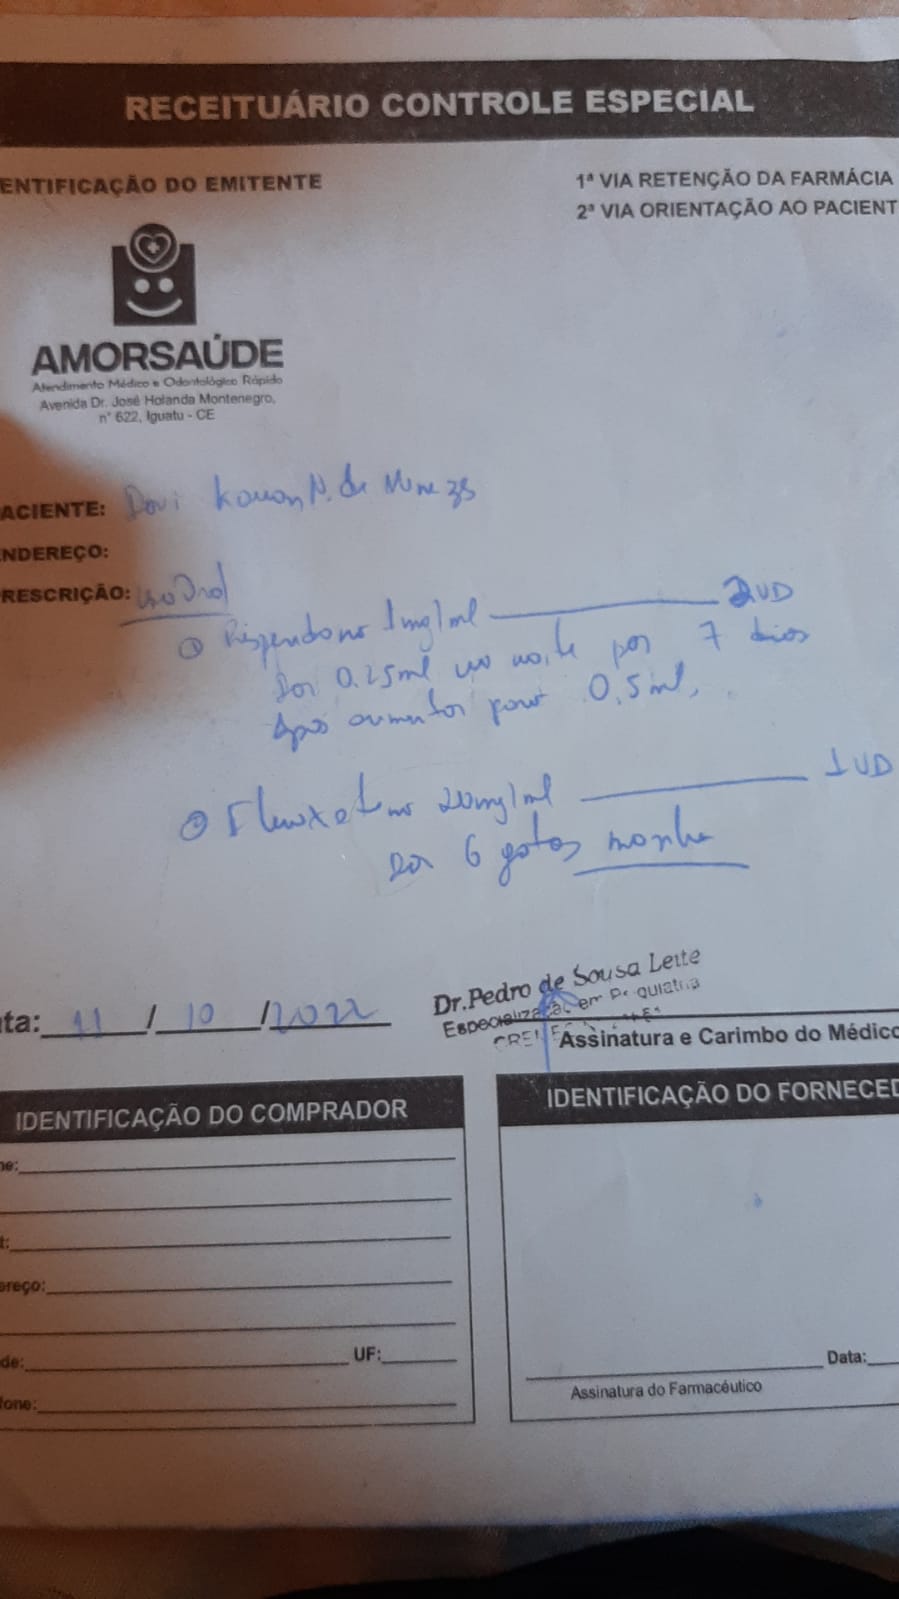 RECEITUÁRIO CONTROLE ESPECIAL
ENTIFICAÇÃO DO EMITENTE
1ª VIA RETENÇÃO DA FARMÁCIA
2ª VIA ORIENTAÇÃO AO PACIENT
AMORSAÚDE
Atendimento Médico e Odontológico Rápido
Avenida Dr. José Holanda Montenegro,
n° 622, Iguatu - CE
ACIENTE: Davi Kauan N. de
NDEREÇO:
RESCRIÇÃO: Uso Oral
① Risperidona 1mg/ml 2UD
Dar 0.25ml na noite por 7 dias
Após aumentar para 0,5ml.
② Fluoxetina 20mg/ml 1UD
Dar 6 gotas manhã
ta: 11 / 10 / 2022
Dr. Pedro de Sousa Leite
Especialização em Psiquiatria
Assinatura e Carimbo do Médico
IDENTIFICAÇÃO DO COMPRADOR
IDENTIFICAÇÃO DO FORNECED
me:
t:
ereço:
de: UF:
fone:
Data:
Assinatura do Farmacéutico